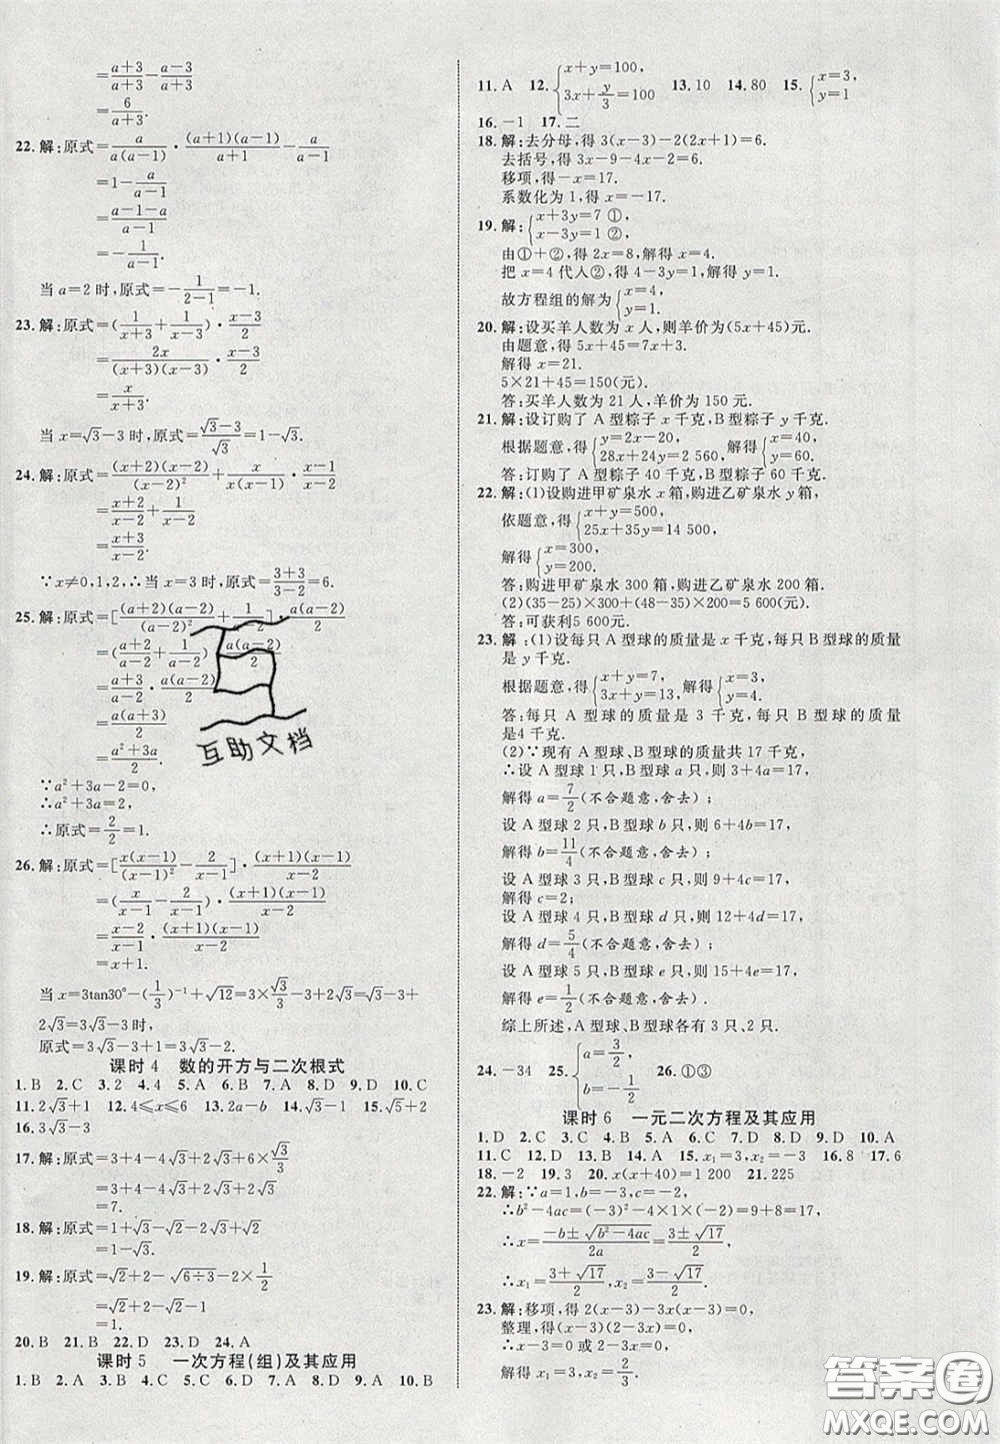 =(a+3)/(a+3)-(a-3)/(a+3)
=6/(a+3).
22.解:原式=a/(a(a-1))·((a+1)(a-1))/(a+1)-a/(a-1)
=1-a/(a-1)
=(a-1-a)/(a-1)
=-1/(a-1).
当a=2时,原式=-1/(2-1)=-1.
23.解:原式=(1/(x+3)+1/(x-3))·(x-3)/2
=2x/((x+3)(x-3))·(x-3)/2
=x/(x+3).
当x=√3-3时,原式=(√3-3)/√3=1-√3.
24.解:原式=((x+2)(x-2))/(x-2)²+x/(x-2)·1/x
=(x+2)/(x-2)+1/(x-2)
=(x+3)/(x-2).
∵x≠0,1,2,∴当x=3时,原式=(3+3)/(3-2)=6.
25.解:原式=[((a+2)(a-2))/(a-2)²+1/(a-2)]·(a(a-2))/2
=((a+2)/(a-2)+1/(a-2))·(a(a-2))/2
=(a+3)/(a-2)·(a(a-2))/2
=(a(a+3))/2
=(a²+3a)/2.
∵a²+3a-2=0,
∴a²+3a=2,
∴原式=2/2=1.
26.解:原式=[(x(x-1))/(x-1)²-2/(x-1)]·((x+1)(x-1))/(x-2)
=(x/(x-1)-2/(x-1))·((x+1)(x-1))/(x-2)
=(x-2)/(x-1)·((x+1)(x-1))/(x-2)
=x+1.
当x=3tan30°-(1/3)⁻¹+√12=3×√3/3-3+2√3=√3-3+
2√3=3√3-3时,
原式=3√3-3+1=3√3-2.
课时4 数的开方与二次根式
1.B 2.C 3.2 4.4 5.A 6.B 7.C 8.D 9.D 10.C
11.2√3+1 12.4≤x≤6 13.2a-b 14.√3 15.√5+2
16.3√3-3
17.解:原式=3+4-4√3+2√3+6×√3/3
=3+4-4√3+2√3+2√3
=7.
18.解:原式=1+√3-√2-2√3+√2
=1-√3.
19.解:原式=√2+2-√(6÷3)-2×1/2
=√2+2-√2-1
=1.
20.B 21.B 22.D 23.D 24.A
课时5 一次方程(组)及其应用
1.B 2.A 3.B 4.C 5.A 6.B 7.D 8.A 9.A 10.B
11.A 12.{x+y=100, 3x+y/3=100 13.10 14.80 15.{x=3, y=1
16.-1 17.二
18.解:去分母,得3(x-3)-2(2x+1)=6.
去括号,得3x-9-4x-2=6.
移项,得-x=17.
系数化为1,得x=-17.
19.解:{x+3y=7 ①, x-3y=1 ②,
由①+②,得2x=8,解得x=4.
把x=4代入②,得4-3y=1,解得y=1.
故方程组的解为{x=4, y=1.
20.解:设买羊人数为x人,则羊价为(5x+45)元.
由题意,得5x+45=7x+3.
解得x=21.
5×21+45=150(元).
答:买羊人数为21人,羊价为150元.
21.解:设订购了A型粽子x千克,B型粽子y千克.
根据题意,得{y=2x-20, 28x+24y=2 560,解得{x=40, y=60.
答:订购了A型粽子40千克,B型粽子60千克.
22.解:(1)设购进甲矿泉水x箱,购进乙矿泉水y箱,
依题意,得{x+y=500, 25x+35y=14 500,
解得{x=300, y=200.
答:购进甲矿泉水300箱,购进乙矿泉水200箱.
(2)(35-25)×300+(48-35)×200=5 600(元).
答:可获利5 600元.
23.解:(1)设每只A型球的质量是x千克,每只B型球的质量
是y千克.
根据题意,得{x+y=7, 3x+y=13,解得{x=3, y=4.
答:每只A型球的质量是3千克,每只B型球的质量
是4千克.
(2)∵现有A型球、B型球的质量共17千克,
∴设A型球1只,B型球a只,则3+4a=17,
解得a=7/2(不合题意,舍去);
设A型球2只,B型球b只,则6+4b=17,
解得b=11/4(不合题意,舍去);
设A型球3只,B型球c只,则9+4c=17,
解得c=2;
设A型球4只,B型球d只,则12+4d=17,
解得d=5/4(不合题意,舍去);
设A型球5只,B型球e只,则15+4e=17,
解得e=1/2(不合题意,舍去);
综上所述,A型球、B型球各有3只、2只.
24.-34 25.{a=3/2, b=-1/2 26.①③
课时6 一元二次方程及其应用
1.D 2.C 3.B 4.C 5.A 6.D 7.B 8.B 9.D 10.A
11.C 12.D 13.B 14.A 15.x₁=3,x₂=-1 16.8 17.6
18.-2 19.3 20.x(x+40)=1 200 21.225
22.解:∵a=1,b=-3,c=-2,
∴b²-4ac=(-3)²-4×1×(-2)=9+8=17,
∴x=(-b±√(b²-4ac))/2a=(3±√17)/2,
∴x₁=(3+√17)/2,x₂=(3-√17)/2.
23.解:移项,得2(x-3)-3x(x-3)=0,
整理,得(x-3)(2-3x)=0,
∴x-3=0或2-3x=0,
解得x₁=3,x₂=2/3.
互助文档
答案圈
MXQE.COM